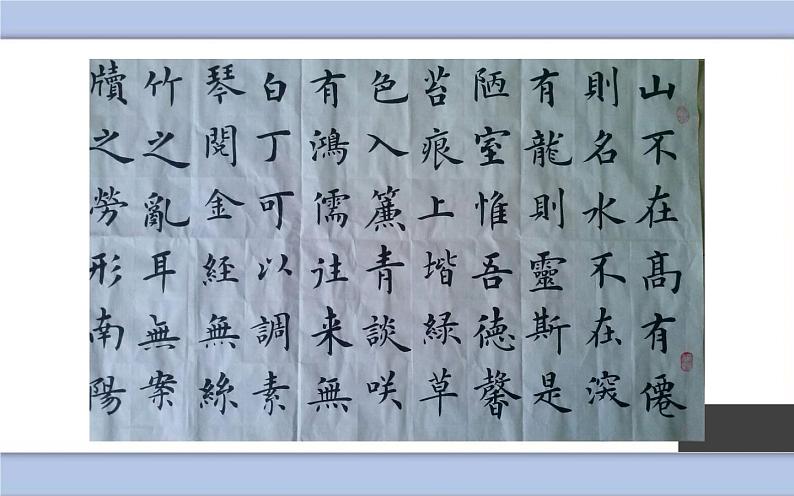 山不在髙有僊
則名水不在深
有龍則靈斯是
陋室惟吾德馨
苔痕上堦緑草
色入簾青談咲
有鴻儒往来無
白丁可以調素
琴閱金經無絲
竹之亂耳無案
牘之勞形南陽